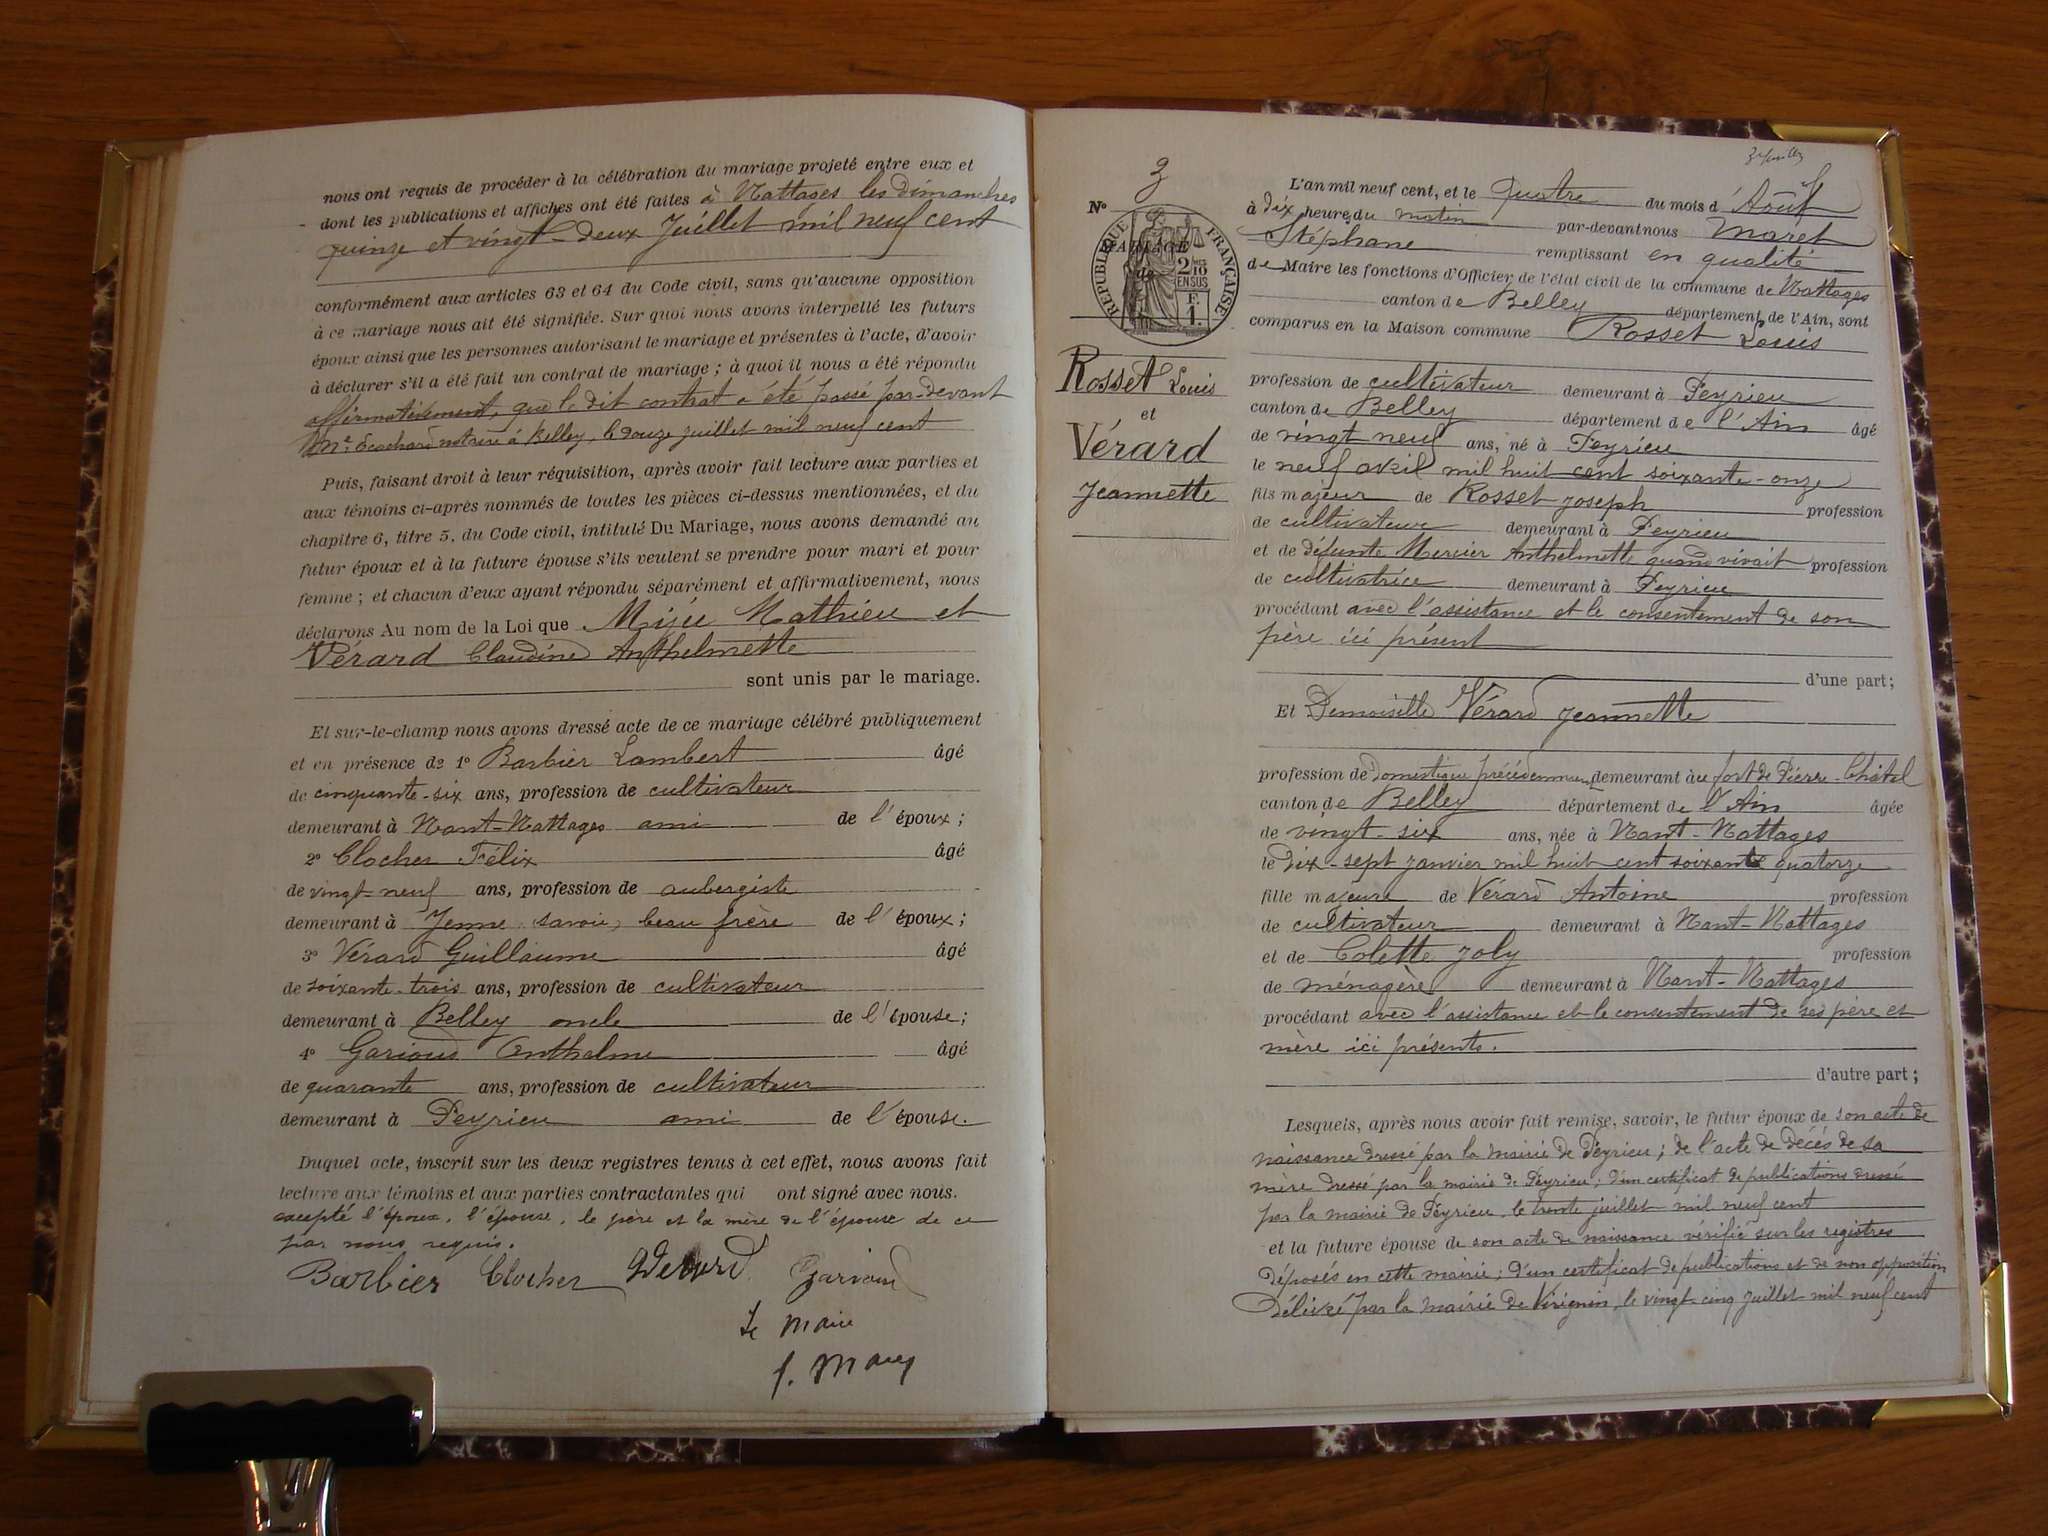 nous ont requis de procéder à la célébration du mariage projeté entre eux et
dont les publications et affiches ont été faites à Nattages les dimanches
quinze et vingt-deux Juillet mil neuf cent
conformément aux articles 63 et 64 du Code civil, sans qu'aucune opposition
à ce mariage nous ait été signifiée. Sur quoi nous avons interpellé les futurs
époux ainsi que les personnes autorisant le mariage et présentes à l'acte, d'avoir
à déclarer s'il a été fait un contrat de mariage ; à quoi il nous a été répondu
affirmativement, que le dit contrat a été passé par-devant
Me notaire à Belley, le douze juillet mil neuf cent
Puis, faisant droit à leur réquisition, après avoir fait lecture aux parties et
aux témoins ci-après nommés de toutes les pièces ci-dessus mentionnées, et du
chapitre 6, titre 5, du Code civil, intitulé Du Mariage, nous avons demandé au
futur époux et à la future épouse s'ils veulent se prendre pour mari et pour
femme ; et chacun d'eux ayant répondu séparément et affirmativement, nous
déclarons Au nom de la Loi que Mathieu et
Vérard Claudine Anthelmette
sont unis par le mariage.
Et sur-le-champ nous avons dressé acte de ce mariage célébré publiquement
et en présence de 1° Barbier Lambert âgé
de cinquante-six ans, profession de cultivateur
demeurant à Nant-Nattages ami de l'époux ;
2° Clocher Félix âgé
de vingt-neuf ans, profession de aubergiste
demeurant à Yenne (savoie) beau frère de l'époux ;
3° Vérard Guillaume âgé
de soixante-trois ans, profession de cultivateur
demeurant à Belley oncle de l'épouse ;
4° Garioud Anthelme âgé
de quarante ans, profession de cultivateur
demeurant à Peyrieu ami de l'épouse.
Duquel acte, inscrit sur les deux registres tenus à cet effet, nous avons fait
lecture aux témoins et aux parties contractantes qui ont signé avec nous.
excepté l'époux, l'épouse, le père et la mère de l'épouse de ce
par nous requis.
Barbier Clocher Verard Garioud
Le Maire
S. Maret
3
L'an mil neuf cent, et le quatre du mois d'Août
N° à dix heure du matin par-devant nous Maret
Stéphane remplissant en qualité
de Maire les fonctions d'Officier de l'état civil de la commune de Nattages
canton de Belley département de l'Ain, sont
comparus en la Maison commune Rosset Louis
MARIAGE
de
RÉPUBLIQUE FRANÇAISE
2/10 EN SUS
F. 1.
Rosset Louis
et
Vérard
Jeannette
profession de cultivateur demeurant à Peyrieu
canton de Belley département de l'Ain âgé
de vingt neuf ans, né à Peyrieu
le neuf avril mil huit cent soixante-onze
fils majeur de Rosset Joseph profession
de cultivateur demeurant à Peyrieu
et de défunte Mercier Anthelmette quand vivait profession
de cultivatrice demeurant à Peyrieu
procédant avec l'assistance et le consentement de son
père ici présent
d'une part ;
Et Demoiselle Vérard Jeannette
profession de Domestique précédemment demeurant au fort de Pierre-Châtel
canton de Belley département de l'Ain âgée
de vingt-six ans, née à Nant-Nattages
le dix-sept janvier mil huit cent soixante quatorze
fille majeure de Vérard Antoine profession
de cultivateur demeurant à Nant-Nattages
et de Colette Joly profession
de ménagère demeurant à Nant-Nattages
procédant avec l'assistance et le consentement de ses père et
mère ici présents.
d'autre part ;
Lesquels, après nous avoir fait remise, savoir, le futur époux de son acte de
naissance dressé par la mairie de Peyrieu ; de l'acte de décès de sa
mère dressé par la mairie de Peyrieu ; d'un certificat de publications dressé
par la mairie de Peyrieu, le trente juillet mil neuf cent
et la future épouse de son acte de naissance vérifié sur les registres
déposés en cette mairie ; d'un certificat de publications et de non opposition
délivré par la mairie de Virignin, le vingt-cinq juillet mil neuf cent